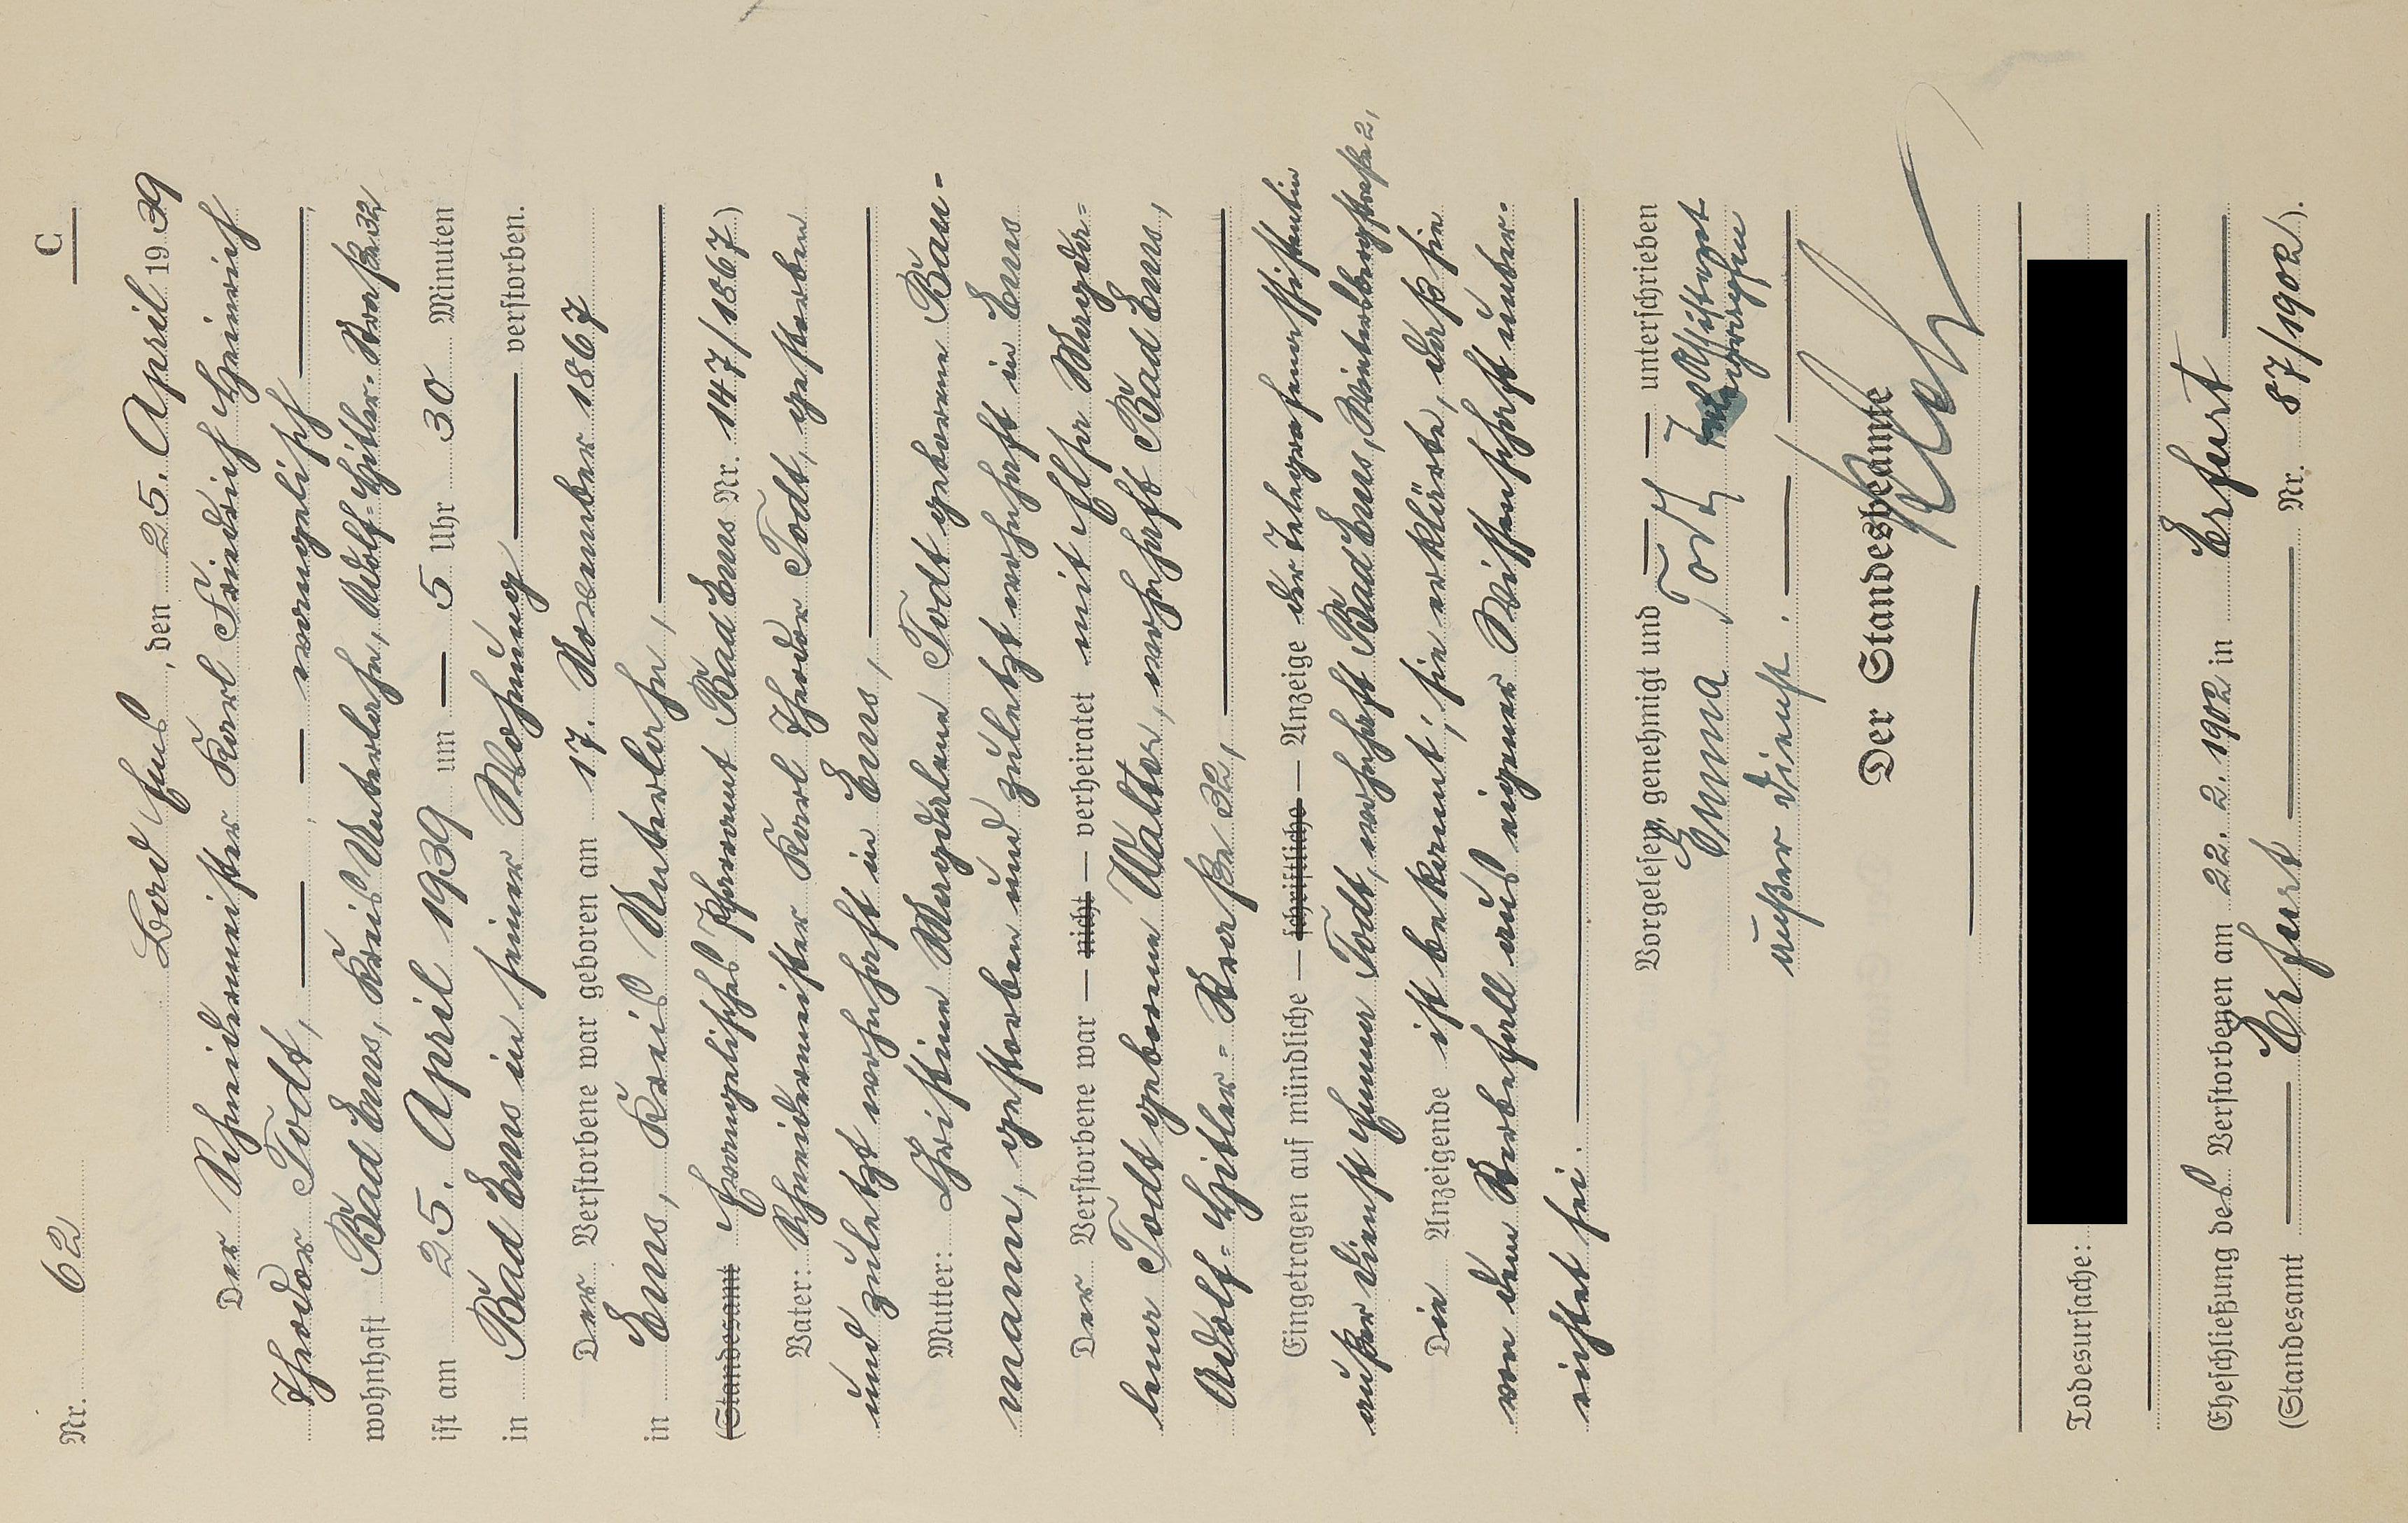 C
Nr. 62
Bad Ems, den 25. April 1939
Der Schneidermeister Karl Friedrich Heinrich
Theodor Todt, — — evangelisch —
wohnhaft Bad Ems, Kreis Unterlahn, Adolf-Hitler-Straße 32
ist am 25. April 1939 um — 5 Uhr 30 Minuten
in Bad Ems in seiner Wohnung — verstorben.
Der Verstorbene war geboren am 17. November 1867
in Ems, Kreis Unterlahn, —
(Standesamt Evangelisches Pfarramt Bad Ems Nr. 147/1867)
Vater: Schneidermeister Karl Theodor Todt, gestorben
und zuletzt wohnhaft in Ems, —
Mutter: Christine Magdalene Todt geborene Bau-
mann, gestorben und zuletzt wohnhaft in Ems
Der Verstorbene war — nicht — verheiratet mit Elsa Magda-
lena Todt geborene Walter, wohnhaft Bad Ems,
Adolf-Hitler-Straße 32, —
Eingetragen auf mündliche — schriftliche — Anzeige der Telegrafenassistentin
außer Dienst Emma Todt, wohnhaft Bad Ems, Wintersbergstraße 2,
Die Anzeigende ist bekannt; sie erklärte, daß sie
von dem Sterbefall aus eigener Wissenschaft unter-
richtet sei. —
Vorgelesen, genehmigt und — unterschrieben
Emma Todt
außer Dienst. —
Der Standesbeamte
Todesursache:
Eheschließung des Verstorbenen am 22. 2. 1902 in Erfurt —
(Standesamt — Erfurt — Nr. 87/1902).